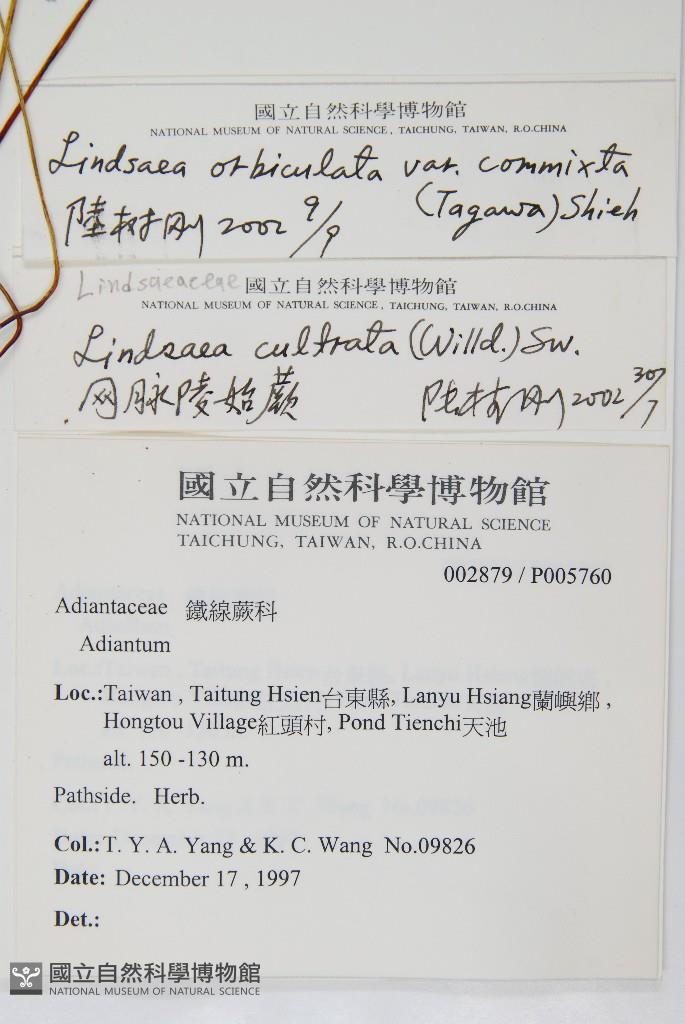 國立自然科學博物館
NATIONAL MUSEUM OF NATURAL SCIENCE, TAICHUNG, TAIWAN, R.O.CHINA
Lindsaea orbiculata var. commixta
(Tagawa) Shieh
陸树刚 2002 9/9
Lindsaeaceae 國立自然科學博物館
NATIONAL MUSEUM OF NATURAL SCIENCE, TAICHUNG, TAIWAN, R.O.CHINA
Lindsaea cultrata (Willd.) Sw.
网脉陵始蕨 陆树刚 2002 30/7
國立自然科學博物館
NATIONAL MUSEUM OF NATURAL SCIENCE
TAICHUNG, TAIWAN, R.O.CHINA
002879 / P005760
Adiantaceae 鐵線蕨科
Adiantum
Loc.:Taiwan , Taitung Hsien台東縣, Lanyu Hsiang蘭嶼鄉 ,
Hongtou Village紅頭村, Pond Tienchi天池
alt. 150 -130 m.
Pathside. Herb.
Col.:T. Y. A. Yang & K. C. Wang No.09826
Date: December 17 , 1997
Det.:
國立自然科學博物館
NATIONAL MUSEUM OF NATURAL SCIENCE